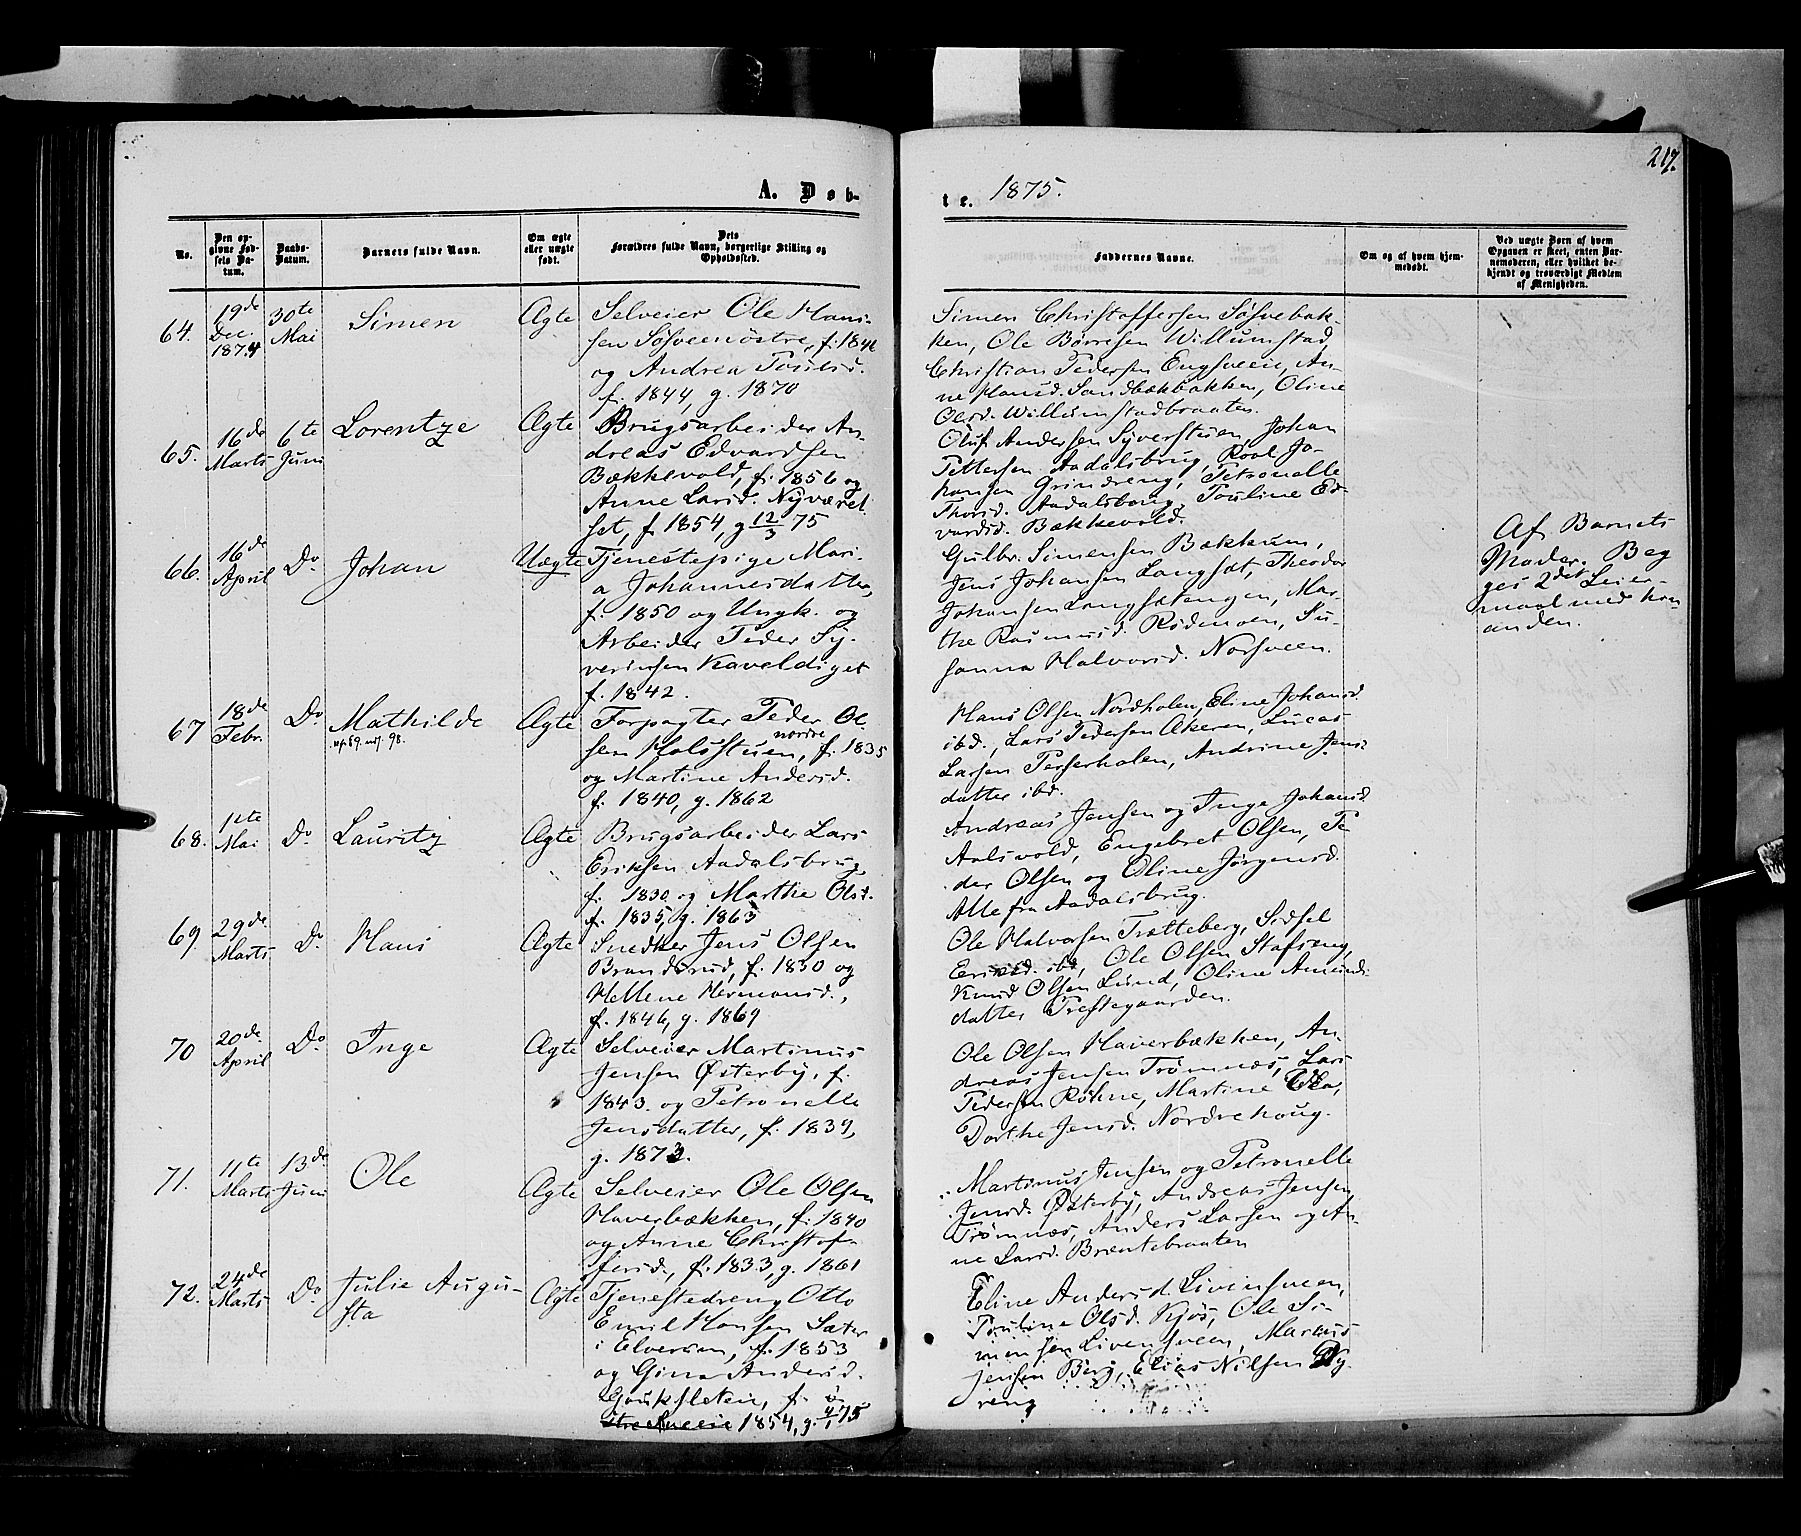 217.
A. Døb-
te. 1875.
No.
Den op-
givne Fød-
sels Da-
tum.
Daabs-
Datum.
Barnets fulde Navn.
Om ægte
eller uægte
født.
Dets
Forældres fulde Navn, borgerlige Stilling og
Opholdssted.
Faddernes Navne.
Om og af hvem hjem-
medøbt.
Ved uægte Børn af hvem
Opgaven er skeet, enten Bar-
nemoderen, eller hvilket be-
kjendt og troværdigt Medlem
af Menigheden.
64.
19de
Dec.
1874
30te
Mai
Simen
Ægte
Selveier Ole Han-
sen Søsveenøstre, f. 1846
og Andrea Poulsd.
f. 1844, g. 1870
Simen Christoffersen Søsvebak-
ken, Ole Børresen Willumstad
Christian Pedersen Engsveen, An-
ne Hansd. Sandbækbakken, Oline
Olsd. Willumstadbraaten.
65.
16de
Marts
6te
Juni
Lorentze
Ægte
Brugsarbeider An-
dreas Edvardsen
Bækkevold, f. 1856 og
Anne Larsd. Nyværel-
set, f. 1854, g 12/3 75
Oluf Andersen Syverstuen, Johan
Pettersen Aadalsbrug, Roal Jo-
hansen Grindreng, Petronelle
Thorsd. Aadalsbrug, Pouline Ed-
vardsd. Bækkevold.
66.
16de
April
Do
Johan
Uægte
Tjenestepige Mari-
a Johannesdatter,
f. 1850 og Ungk. og
Arbeider Peder Sy-
verinsen Kaveldiget
f. 1842.
Gulbr. Simensen Bækkum,
Jens Johansen Langsæt, Theodor
Johansen Langsætengen, Mar-
the Rasmusd. Rødmoen, Su-
sanna Halvorsd. Norsveen.
Af Barnets
Moder. Beg
ges 2det Leier-
maal med hin-
anden.
67
18de
Febr.
Do
Mathilde
Ægte
Forpagter Peder Ol-
sen Holsstuen, nordre f. 1835
og Martine Andersd.
f. 1840, g. 1862
Hans Olsen Nordholen, Eline Johansd.
ibd., Lars Pedersen Akeren, Lucas
Larsen Perserholen, Andrine Jens-
datter ibd.
68.
1ste
Mai
Do
Lauritz
Ægte
Brugsarbeider Lars
Eriksen Aadalsbrug,
f. 1830 og Marthe Olsd.
f. 1835, g. 1863
Andreas Jensen og Inge Johansd.
Aalsvold, Engebret Olsen, Pe
der Olsen og Oline Jørgensd.
Alle fra Aadalsbrug.
69.
29de
Marts
Do
Hans
Ægte
Snedker Jens Olsen
Brandsrud, f. 1850 og
Hellene Hermansd.,
f. 1846, g. 1869
Ole Halvorsen Trætteberg, Sidsel
Eriksd. ibd, Ole Olsen Stafseng,
Knud Olsen Lund, Oline Amunds-
datter Prestegaarden.
70
20de
April
Do
Inge
Ægte
Selveier Martinus
Jensen Østerby, f.
1843. og Petronelle
Jensdatter, f. 1839,
g. 1873.
Ole Olsen Haverbækken, An-
dreas Jensen Trømnæs, Lars
Pedersen Røhne, Martine
Dorthe Jensd. Nordrehoug.
71.
11te
Marts
13de
Juni
Ole
Ægte
Selveier Ole Olsen
Haverbækken, f. 1840
og Anne Christof-
fersd., f. 1833, g. 1861
Martinus Jensen og Petronelle
Jensd. Østerby, Andreas Jensen
Trømnæs, Anders Larsen og An-
ne Larsd. Bræntebraaten
72.
24de
Marts
Do
Julie Augu-
sta
Ægte
Tjenestedreng Otto
Emil Hansen Sæter
i Elverum, f. 1853
og Gina Andersd.
Goukfleten, f.
1854, g. 4/1 75
Eline Andersd Livensveen,
Pouline Olsd. Kjøs, Ole Si-
mensen Livensveen, Marius
Jensen Berg, Elias Nilsen Ny-
reng